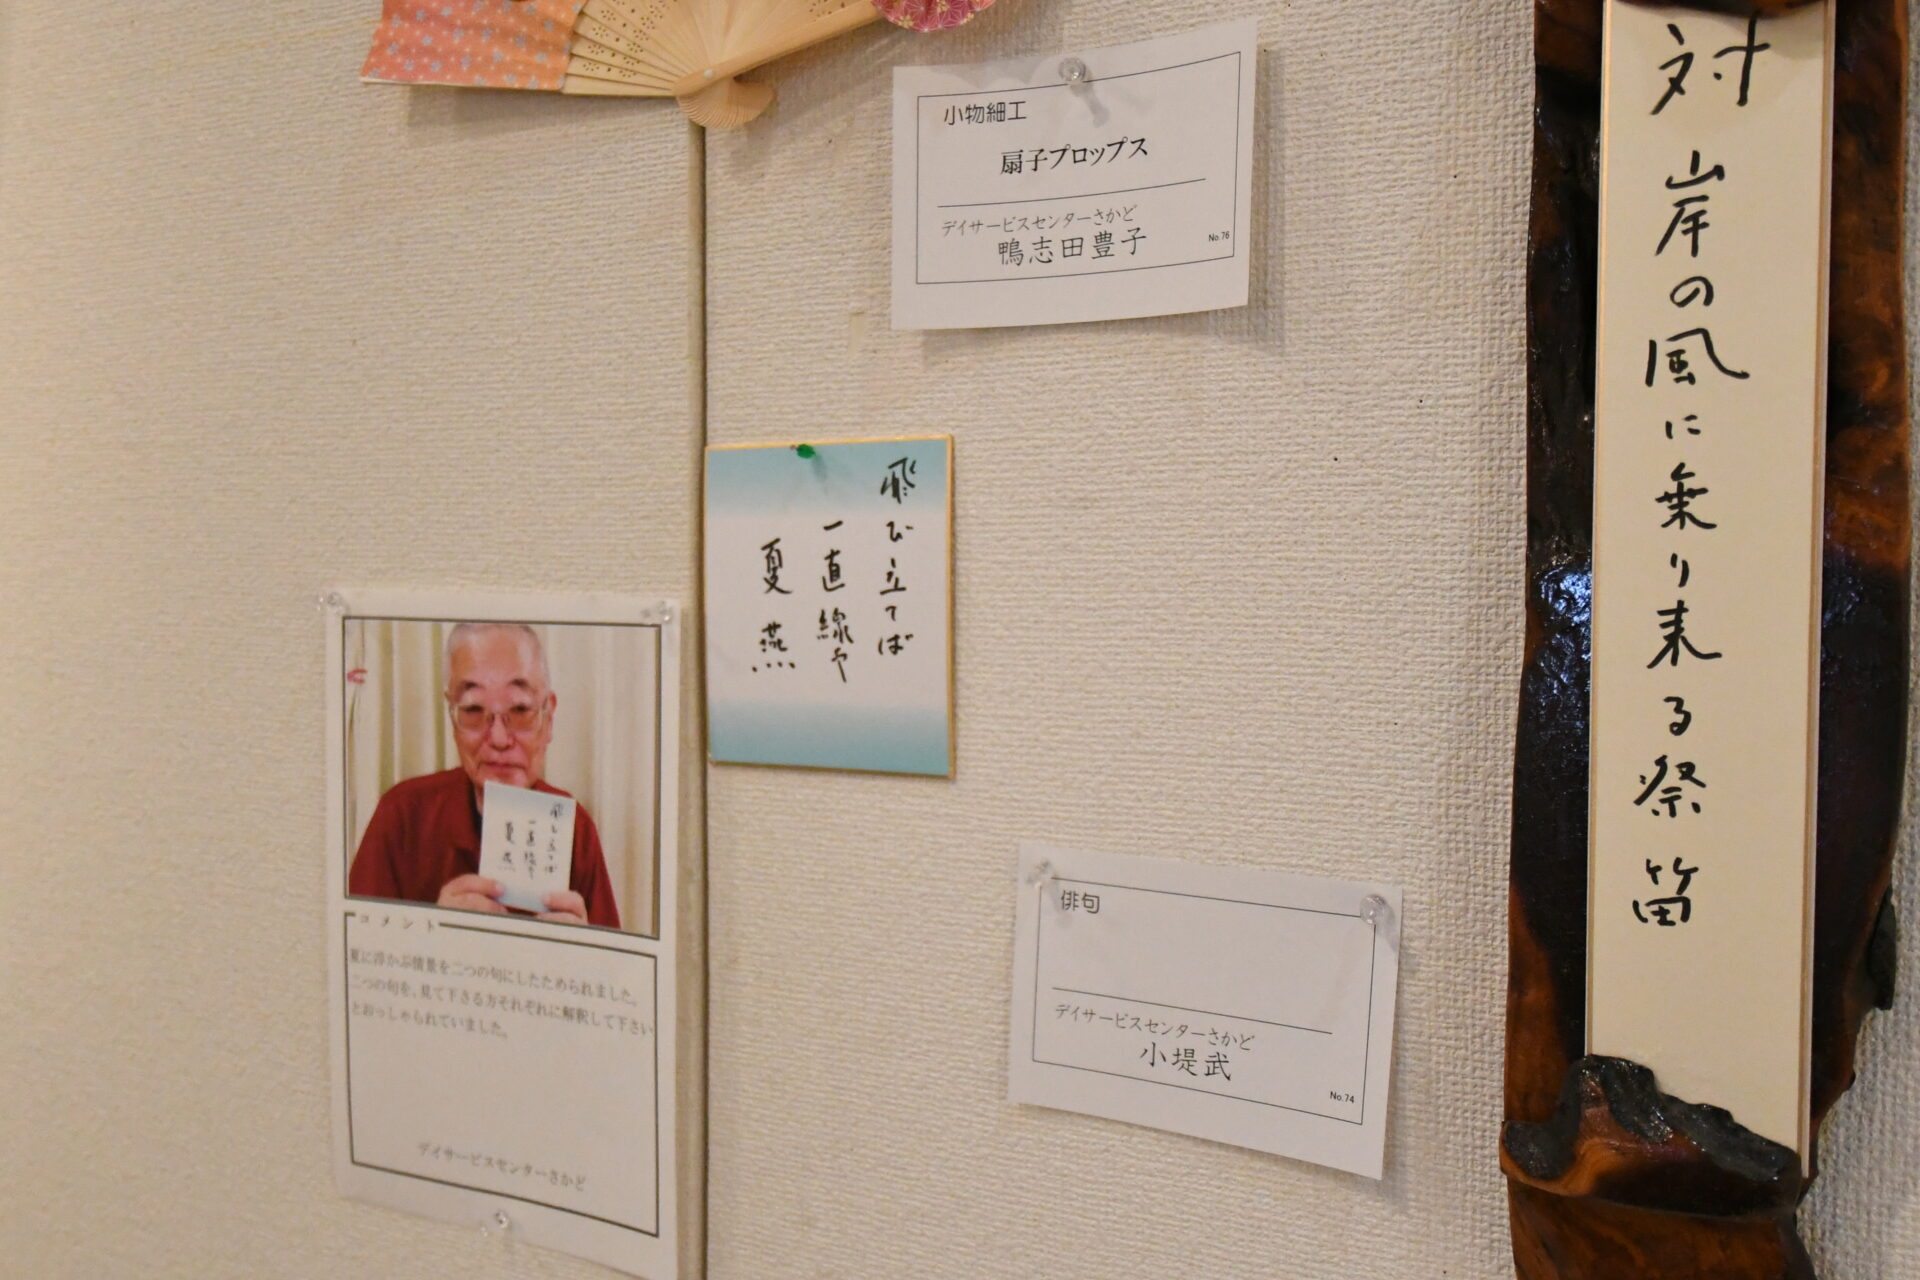 小物細工
扇子プロップス
デイサービスセンターさかど
鴨志田豊子
No.76
対岸の風に乗り来る祭笛
飛び立てば
一直線や
夏燕
飛び立てば
一直線や
夏燕
コメント
夏に浮かぶ情景を二つの句にしたためられました。
二つの句を、見て下さる方それぞれに解釈して下さい
とおっしゃられていました。
デイサービスセンターさかど
俳句
デイサービスセンターさかど
小堤武
No.74